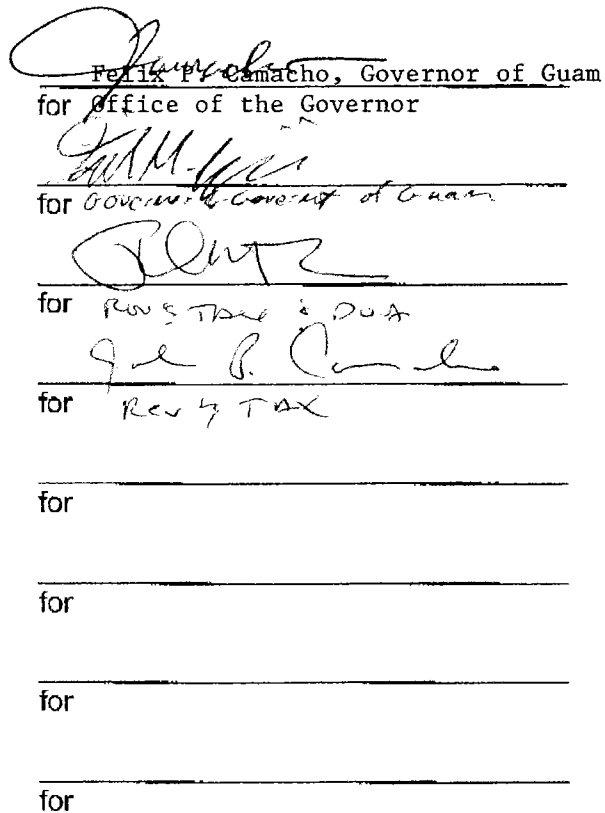 Felix P. Camacho, Governor of Guam
for Office of the Governor
for Government of Guam
for Rev & Tax & DOA
John P. Camacho
for Rev & TAX
for
for
for
for